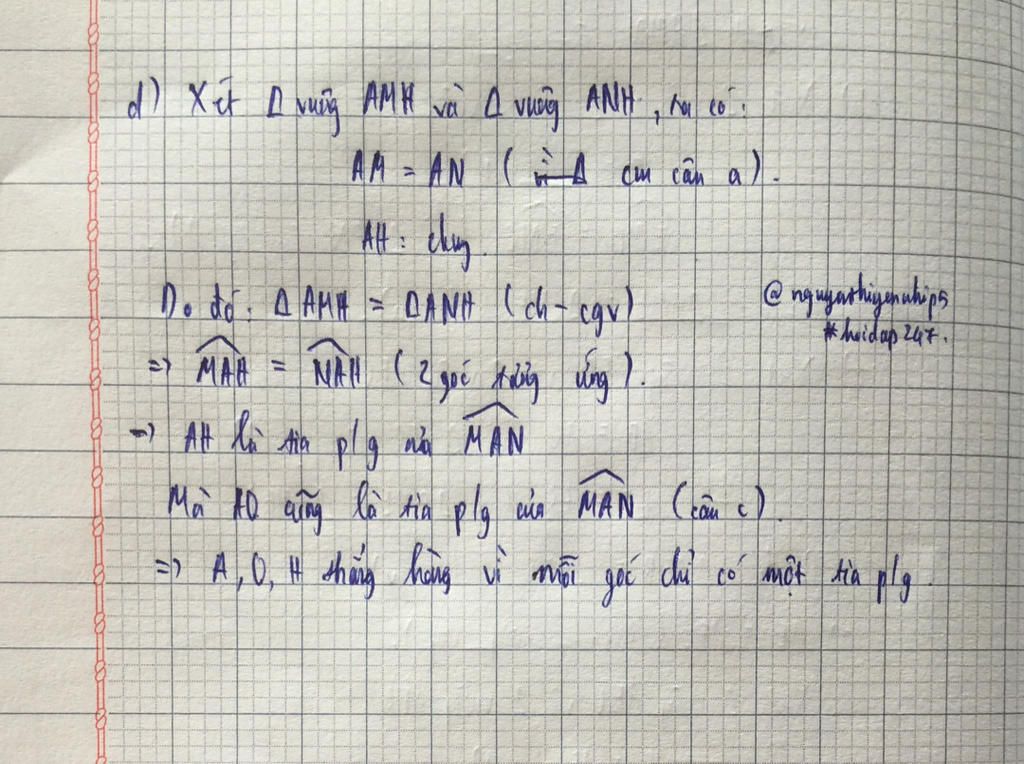 d) Xét Δ vuông AMH và Δ vuông ANH, ta có:
AM = AN ( câu a).
AH : chung.
Do đó: Δ AMH = Δ ANH (ch - cgv)
=> \widehat{MAH} = \widehat{NAH} (2 góc tương ứng).
=> AH là tia p/g của \widehat{MAN}
Mà AO cũng là tia p/g của \widehat{MAN} (câu c).
=> A, O, H thẳng hàng vì mỗi góc chỉ có một tia p/g.
#hoidap247.